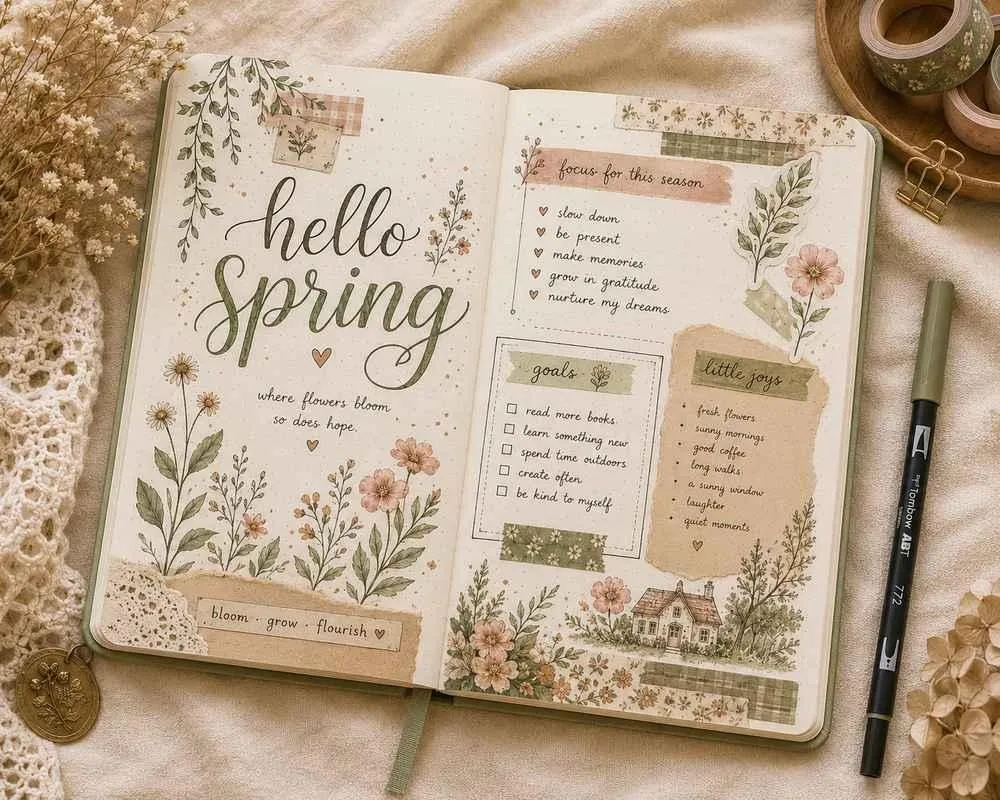 hello
Spring
where flowers bloom
so does hope.
bloom · grow · flourish
focus for this season
slow down
be present
make memories
grow in gratitude
nurture my dreams
goals
read more books
learn something new
spend time outdoors
create often
be kind to myself
little joys
fresh flowers
sunny mornings
good coffee
long walks
a sunny window
laughter
quiet moments
Tombow ABT
772